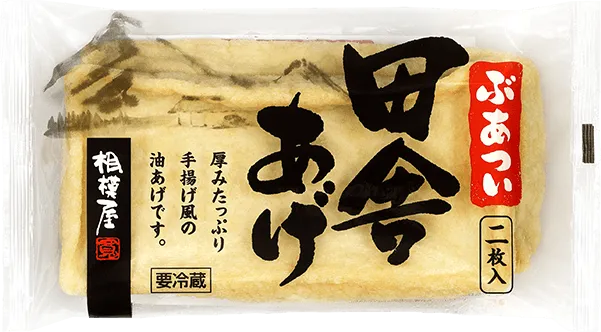 ぶあつい
田舎
あげ
二枚入
厚みたっぷり
手揚げ風の
油あげです。
要冷蔵
相模屋